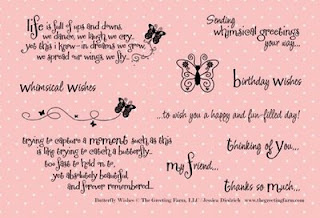 life is full of ups and downs,
we dance, we laugh, we cry...
yet this i know - in dreams we grow,
we spread our wings, we fly...
Sending
whimsical greetings
your way...
Whimsical Wishes
birthday wishes
...to wish you a happy and fun-filled day!
trying to capture a moment such as this
is like trying to catch a butterfly...
too fast to hold on to,
yet absolutely beautiful
and forever remembered...
thinking of you...
my friend...
thanks so much...
Butterfly Wishes © The Greeting Farm, LLC Jessica Diedrich www.thegreetingfarm.com